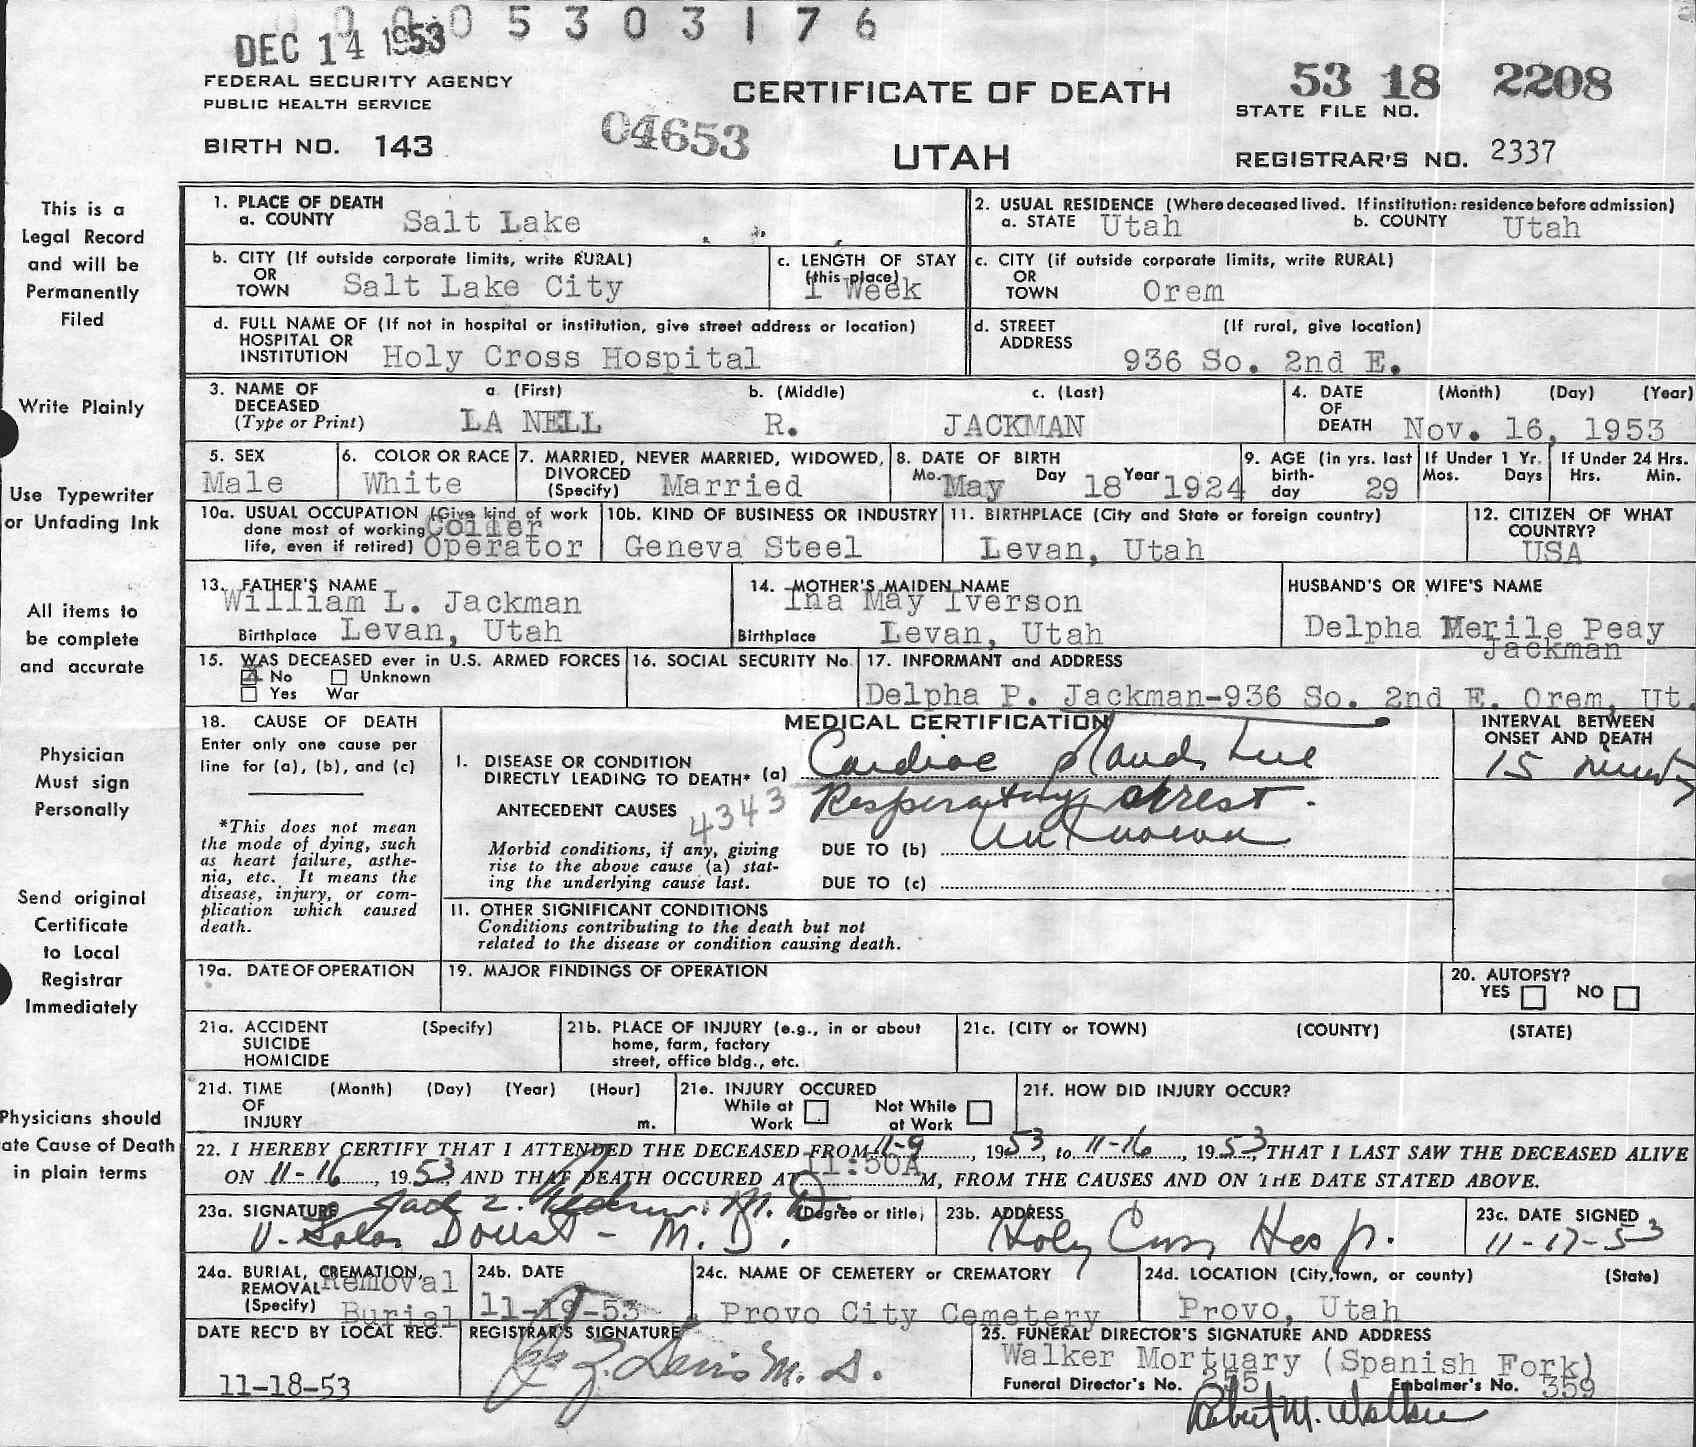 0 0 0 5 3 0 3 1 7 6
DEC 14 1953
FEDERAL SECURITY AGENCY
PUBLIC HEALTH SERVICE
BIRTH NO. 143
04653
CERTIFICATE OF DEATH
UTAH
53 18 2208
STATE FILE NO.
REGISTRAR'S NO. 2337
This is a
Legal Record
and will be
Permanently
Filed
Write Plainly
Use Typewriter
or Unfading Ink
All items to
be complete
and accurate
Physician
Must sign
Personally
Send original
Certificate
to Local
Registrar
Immediately
Physicians should
ate Cause of Death
in plain terms
1. PLACE OF DEATH
a. COUNTY Salt Lake
2. USUAL RESIDENCE (Where deceased lived. If institution: residence before admission)
a. STATE Utah b. COUNTY Utah
b. CITY (If outside corporate limits, write RURAL)
OR
TOWN Salt Lake City
c. LENGTH OF STAY
(this place)
1 Week
c. CITY (if outside corporate limits, write RURAL)
OR
TOWN Orem
d. FULL NAME OF (If not in hospital or institution, give street address or location)
HOSPITAL OR
INSTITUTION Holy Cross Hospital
d. STREET (If rural, give location)
ADDRESS
936 So. 2nd E.
3. NAME OF a. (First) b. (Middle) c. (Last)
DECEASED
(Type or Print) LA NELL R. JACKMAN
4. DATE (Month) (Day) (Year)
OF
DEATH Nov. 16, 1953
5. SEX
Male
6. COLOR OR RACE
White
7. MARRIED, NEVER MARRIED, WIDOWED,
DIVORCED
(Specify) Married
8. DATE OF BIRTH
Mo. May Day 18 Year 1924
9. AGE (in yrs. last
birth-
day 29
If Under 1 Yr.
Mos. Days
If Under 24 Hrs.
Hrs. Min.
10a. USUAL OCCUPATION (Give kind of work
done most of working Coiler
life, even if retired) Operator
10b. KIND OF BUSINESS OR INDUSTRY
Geneva Steel
11. BIRTHPLACE (City and State or foreign country)
Levan, Utah
12. CITIZEN OF WHAT
COUNTRY?
USA
13. FATHER'S NAME
William L. Jackman
Birthplace Levan, Utah
14. MOTHER'S MAIDEN NAME
Ina May Iverson
Birthplace Levan, Utah
HUSBAND'S OR WIFE'S NAME
Delpha Merile Peay
Jackman
15. WAS DECEASED ever in U.S. ARMED FORCES
No Unknown
Yes War
16. SOCIAL SECURITY No.
17. INFORMANT and ADDRESS
Delpha P. Jackman-936 So. 2nd E. Orem, Ut.
18. CAUSE OF DEATH
Enter only one cause per
line for (a), (b), and (c)
*This does not mean
the mode of dying, such
as heart failure, asthe-
nia, etc. It means the
disease, injury, or com-
plication which caused
death.
MEDICAL CERTIFICATION
I. DISEASE OR CONDITION
DIRECTLY LEADING TO DEATH* (a) Cardiac
Respiratory arrest.
ANTECEDENT CAUSES 4343
Morbid conditions, if any, giving
rise to the above cause (a) stat-
ing the underlying cause last.
DUE TO (b) unknown
DUE TO (c)
INTERVAL BETWEEN
ONSET AND DEATH
15 minutes
11. OTHER SIGNIFICANT CONDITIONS
Conditions contributing to the death but not
related to the disease or condition causing death.
19a. DATE OF OPERATION
19. MAJOR FINDINGS OF OPERATION
20. AUTOPSY?
YES NO
21a. ACCIDENT (Specify)
SUICIDE
HOMICIDE
21b. PLACE OF INJURY (e.g., in or about
home, farm, factory
street, office bldg., etc.
21c. (CITY or TOWN) (COUNTY) (STATE)
21d. TIME (Month) (Day) (Year) (Hour)
OF
INJURY m.
21e. INJURY OCCURED
While at Not While
Work at Work
21f. HOW DID INJURY OCCUR?
22. I HEREBY CERTIFY THAT I ATTENDED THE DECEASED FROM 11-9, 1953, to 11-16, 1953, THAT I LAST SAW THE DECEASED ALIVE
ON 11-16, 1953, AND THAT DEATH OCCURED AT 11:50A M, FROM THE CAUSES AND ON THE DATE STATED ABOVE.
23a. SIGNATURE M.D. (Degree or title)
M.D.
23b. ADDRESS
Holy Cross Hosp.
23c. DATE SIGNED
11-17-53
24a. BURIAL, CREMATION,
REMOVAL Removal
(Specify) Burial
24b. DATE
11-19-53
24c. NAME OF CEMETERY or CREMATORY
Provo City Cemetery
24d. LOCATION (City, town, or county) (State)
Provo, Utah
DATE REC'D BY LOCAL REG.
11-18-53
REGISTRAR'S SIGNATURE
Davis M.D.
25. FUNERAL DIRECTOR'S SIGNATURE AND ADDRESS
Walker Mortuary (Spanish Fork)
Funeral Director's No. 255 Embalmer's No. 359
Robert M. Walker